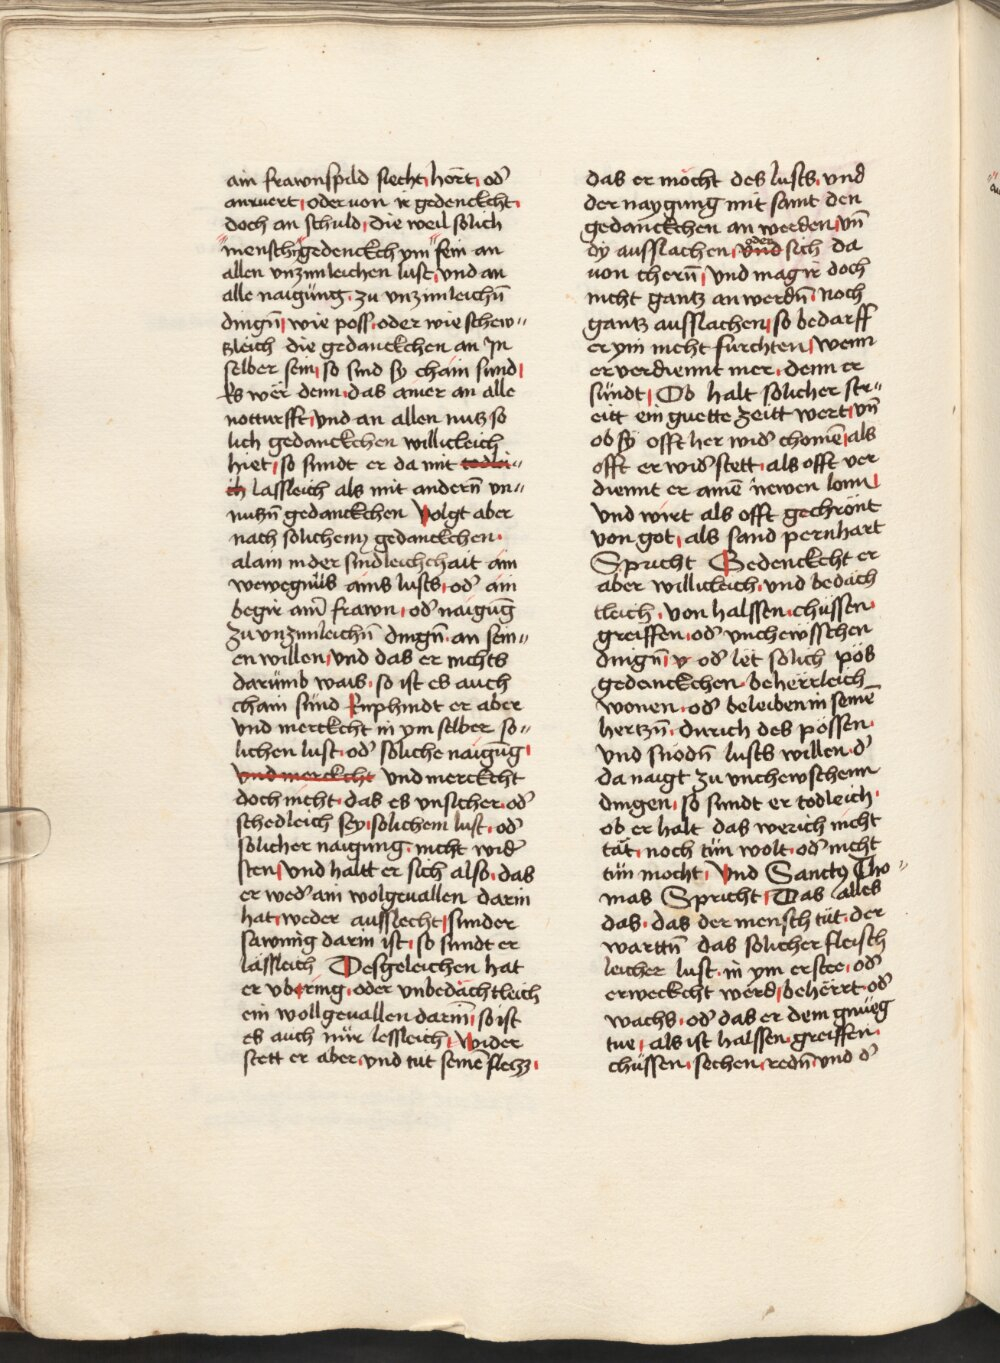 ain frawnspild siecht, hört, od̓
anruert, oder von ir gedenckcht,
doch an schuld, die weil solich
mensch gedenckch ym sein an
allen unzimleichen lust, und an
alle naigung, zu unzimleichn̄
dingn̄, wie poss, oder wie schew„
tzleich die gedanckchen an In
selber sein, so sind sy chain sund,
Es wër denn, das ainer an alle
notturfft, und an allen nutz so
lich gedanckchen willicleich
hiet, so sundt er da mit todlei„
ch lassleich als mit andern̄ un„
nutzn̄ gedanckchen Volgt aber
nach solichem gedanckchen,
alain in der sindleichchait ain
wewegnüs ains lusts, od̓ ain
begir ain̄ frawn, od̓ naigūg
zu unzimleichn̄ dingn̄ an sein„
en willen, und das er nichts
darümb wais, so ist es auch
chain sünd Enphindt er aber
und merckcht in ym selber so„
lichen lust, od̓ soliche naigūg,
und merckcht und merckcht
doch nicht, das es unsicher, od̓
schedleich sey, solichem lust, od̓
solicher naigung, nicht wid̓
sten, und haltt er sich also, das
er wed̓ ain wolgevallen darin
hat, weder ausslecht, sunder
sawmig darin ist, so sundt er
lässleich Desgeleichen hat
er ubering, oder unbedächtleich
ein wollgevallen darin̄, so ist
es auch nür lessleich, Wider
stett er aber, und tut seinē fleizz,
das er möcht des lusts, und
der naygung mit samt den
gedanckchen an werden, un̄
dy ausslachen, und oder sich da
von chern̄, und mag ir doch
nicht gantz an werdn̄, noch
gantz ausslachen, so bedarff
er ym nicht furchten, wenn
er verdiennt mer, denn er
sündt, Ob halt solicher str„
eitt ein guette zeitt wert, un̄
ob sÿ offt her wid̓ chomē, als
offt er wid̓stett, als offt ver
diennt er ainē newen lonn,
und wirt als offt gechrönt
von got, als sand pernhart
Spricht Gedenckcht er
aber willicleich, und bedäch
tleich, von halssen, chüssen,
greiffen, od̓ unchewsschen
dingn̄, v od̓ lët solich pös
gedenckchen, beherrleich
wonen, od̓ beleiben in seinē
hertzn̄, durich des pössen,
und snodn̄ lusts willen, d̓
da naigt zu unchewschenn
dingen, so sundt er todleich,
ob er halt das werich nicht
tät, noch tün wolt, od̓ nicht
tün mocht, Und Sanctꝯ Tho„
mas Spricht, Das alles
das, das der mensch tüt, der
warttn̄ das solicher fleisch
leicher lust, in ym erstee, od̓
erweckcht werd, behërrt, od̓
wachs, od̓ das er dem gnüeg
tue, als ist halssen, greiffen,
chüssen, sechen, redn̄, und d̓